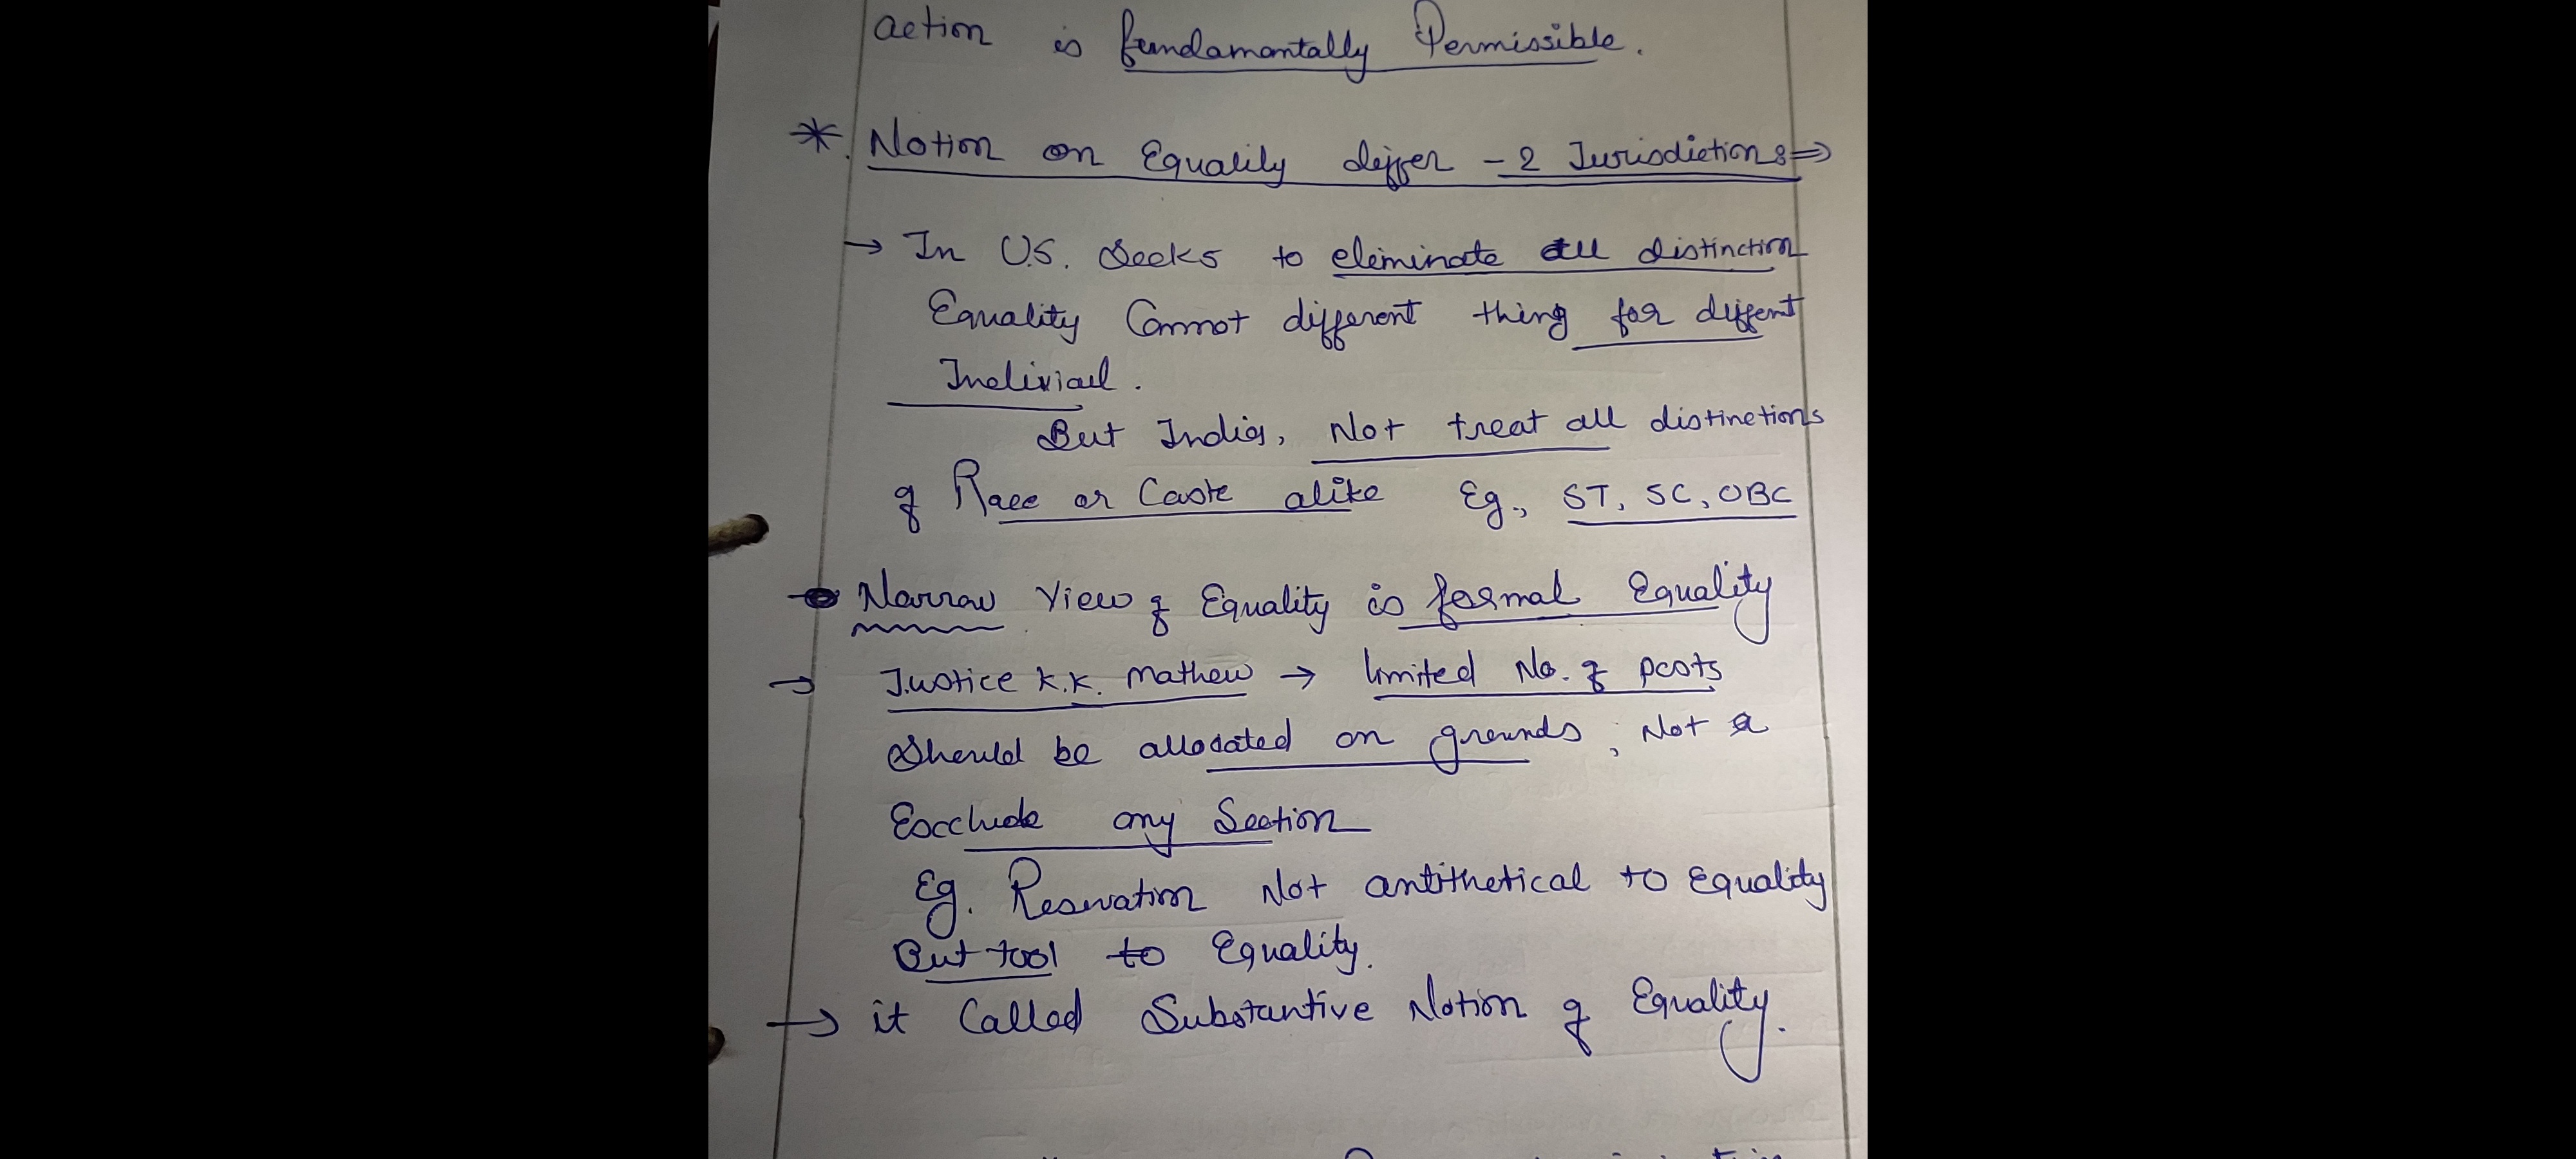 action is fundamantally Permissible.
*. Notion on Equality differ - 2 Jurisdictions ⇒
→ In U.S. Seeks to eleminate all distinction
Equality Cannot different thing for diffent
Indiviaul.
But India, Not treat all distinctions
of Race or Caste alike Eg., ST, SC, OBC
Narrow View of Equality is formal Equality
→ Justice K.K. Mathew → limited No. of posts
Should be allocated on grounds, Not a
Excclude any Section
Eg. Reservation Not antithetical to Equality
But tool to Equality.
→ it Called Substantive Notion of Equality.